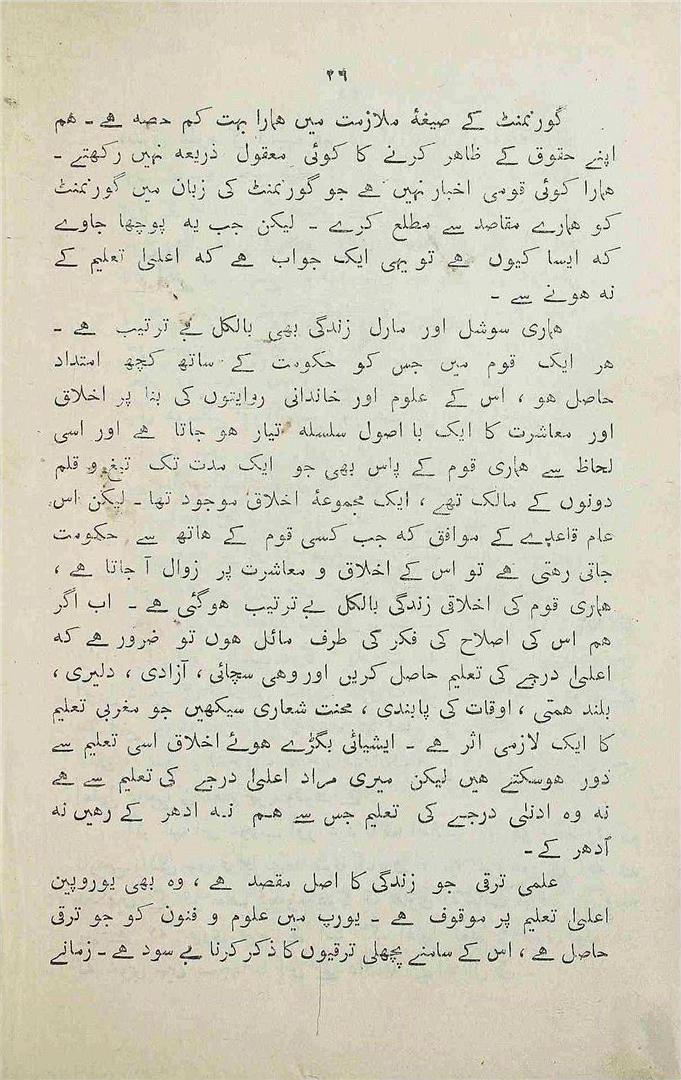 ۲۹
گورنمنٹ کے صیغۂ ملازمت میں ھمارا بہت کم حصہ ھے ۔ ھم
اپنے حقوق کے ظاھر کرنے کا کوئی معقول ذریعہ نہیں رکھتے ۔
ھمارا کوئی قومی اخبار نہیں ھے جو گورنمنٹ کی زبان میں گورنمنٹ
کو ھمارے مقاصد سے مطلع کرے ۔ لیکن جب یہ پوچھا جاوے
کہ ایسا کیوں ھے تو یہی ایک جواب ھے کہ اعلیٰ تعلیم کے
نہ ھونے سے ۔
ھماری سوشل اور مارل زندگی بھی بالکل بے ترتیب ھے ۔
ھر ایک قوم میں جس کو حکومت کے ساتھ کچھ امتداد
حاصل ھو ، اس کے علوم اور خاندانی روایتوں کی بنا پر اخلاق
اور معاشرت کا ایک با اصول سلسلہ تیار ھو جاتا ھے اور اسی
لحاظ سے ھماری قوم کے پاس بھی جو ایک مدت تک تیغ و قلم
دونوں کے مالک تھے ، ایک مجموعۂ اخلاق موجود تھا ۔ لیکن اس
عام قاعدے کے موافق کہ جب کسی قوم کے ھاتھ سے حکومت
جاتی رھتی ھے تو اس کے اخلاق و معاشرت پر زوال آ جاتا ھے ،
ھماری قوم کی اخلاقی زندگی بالکل بے ترتیب ھوگئی ھے ۔ اب اگر
ھم اس کی اصلاح کی فکر کی طرف مائل ھوں تو ضرور ھے کہ
اعلیٰ درجے کی تعلیم حاصل کریں اور وھی سچائی ، آزادی ، دلیری ،
بلند ھمتی ، اوقات کی پابندی ، محنت شعاری سیکھیں جو مغربی تعلیم
کا ایک لازمی اثر ھے ۔ ایشیائی بگڑے ھوئے اخلاق اسی تعلیم سے
دور ھوسکتے ھیں لیکن میری مراد اعلیٰ درجے کی تعلیم سے ھے
نہ وہ ادنیٰ درجے کی تعلیم جس سے ھم نہ ادھر کے رھیں نہ
اُدھر کے ۔
علمی ترقی جو زندگی کا اصل مقصد ھے ، وہ بھی یوروپین
اعلیٰ تعلیم پر موقوف ھے ۔ یورپ میں علوم و فنون کو جو ترقی
حاصل ھے ، اس کے سامنے پچھلی ترقیوں کا ذکر کرنا بے سود ھے ۔ زمانے